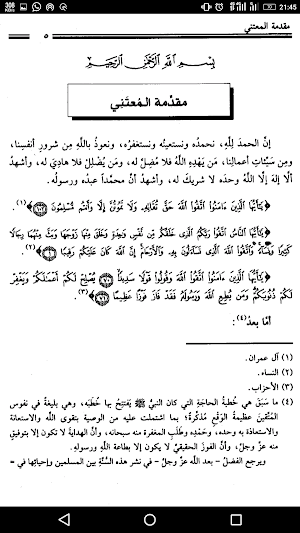 21:45
مقدمة المعتني
٥
بِسْمِ اللَّهِ الرَّحْمَٰنِ الرَّحِيمِ
مقدّمة المُعتَنِي
إنَّ الحمدَ لِلَّهِ، نحمدُه ونستعينُه ونستغفرُه، ونعوذُ باللَّهِ مِن شرورِ أنفسِنا،
ومِن سيّئاتِ أعمالِنا، مَن يَهْدِهِ اللَّهُ فلا مُضِلَّ له، ومَن يُضْلِلْ فلا هاديَ له، وأشهدُ
ألّا إلَهَ إلّا اللَّهُ وحدَه لا شريكَ له، وأشهدُ أنَّ محمّداً عبدُه ورسولُه.
﴿يَٰٓأَيُّهَا ٱلَّذِينَ ءَامَنُوا۟ ٱتَّقُوا۟ ٱللَّهَ حَقَّ تُقَاتِهِۦ وَلَا تَمُوتُنَّ إِلَّا وَأَنتُم مُّسْلِمُونَ ۝١٠٢﴾(١).
﴿يَٰٓأَيُّهَا ٱلنَّاسُ ٱتَّقُوا۟ رَبَّكُمُ ٱلَّذِى خَلَقَكُم مِّن نَّفْسٍ وَٰحِدَةٍ وَخَلَقَ مِنْهَا زَوْجَهَا وَبَثَّ مِنْهُمَا رِجَالًا
كَثِيرًا وَنِسَآءً وَٱتَّقُوا۟ ٱللَّهَ ٱلَّذِى تَسَآءَلُونَ بِهِۦ وَٱلْأَرْحَامَ إِنَّ ٱللَّهَ كَانَ عَلَيْكُمْ رَقِيبًا ۝١﴾(٢).
﴿يَٰٓأَيُّهَا ٱلَّذِينَ ءَامَنُوا۟ ٱتَّقُوا۟ ٱللَّهَ وَقُولُوا۟ قَوْلًا سَدِيدًا ۝٧٠ يُصْلِحْ لَكُمْ أَعْمَٰلَكُمْ وَيَغْفِرْ
لَكُمْ ذُنُوبَكُمْ وَمَن يُطِعِ ٱللَّهَ وَرَسُولَهُۥ فَقَدْ فَازَ فَوْزًا عَظِيمًا ۝٧١﴾(٣).
أمّا بعدُ(٤):
(١) آل عمران.
(٢) النساء.
(٣) الأحزاب.
(٤) ما سَبَقَ هي خُطبةُ الحاجةِ التي كان النبيُّ ﷺ يَفتتحُ بها خُطَبَه، وهي بليغةٌ في نفوس
المُتّقينَ عظيمةُ الوَقْعِ مُذكِّرةٌ؛ بما اشتملت عليه من الوصية بتقوى اللَّه والاستعانة
والاستعاذة به وحده، وحَمْدِه وطَلَبِ المغفرة منه سبحانه، وأنَّ الهدايةَ لا تكون إلا بتوفيقٍ
منه عزَّ وجلَّ، وأنَّ الفوزَ الحقيقيَّ لا يكون إلا بطاعة اللَّه ورسولِه.
ويرجع الفضلُ - بعد اللَّه عزَّ وجلَّ - في نشر هذه السُّنَّةِ بين المسلمين وإحيائها في =